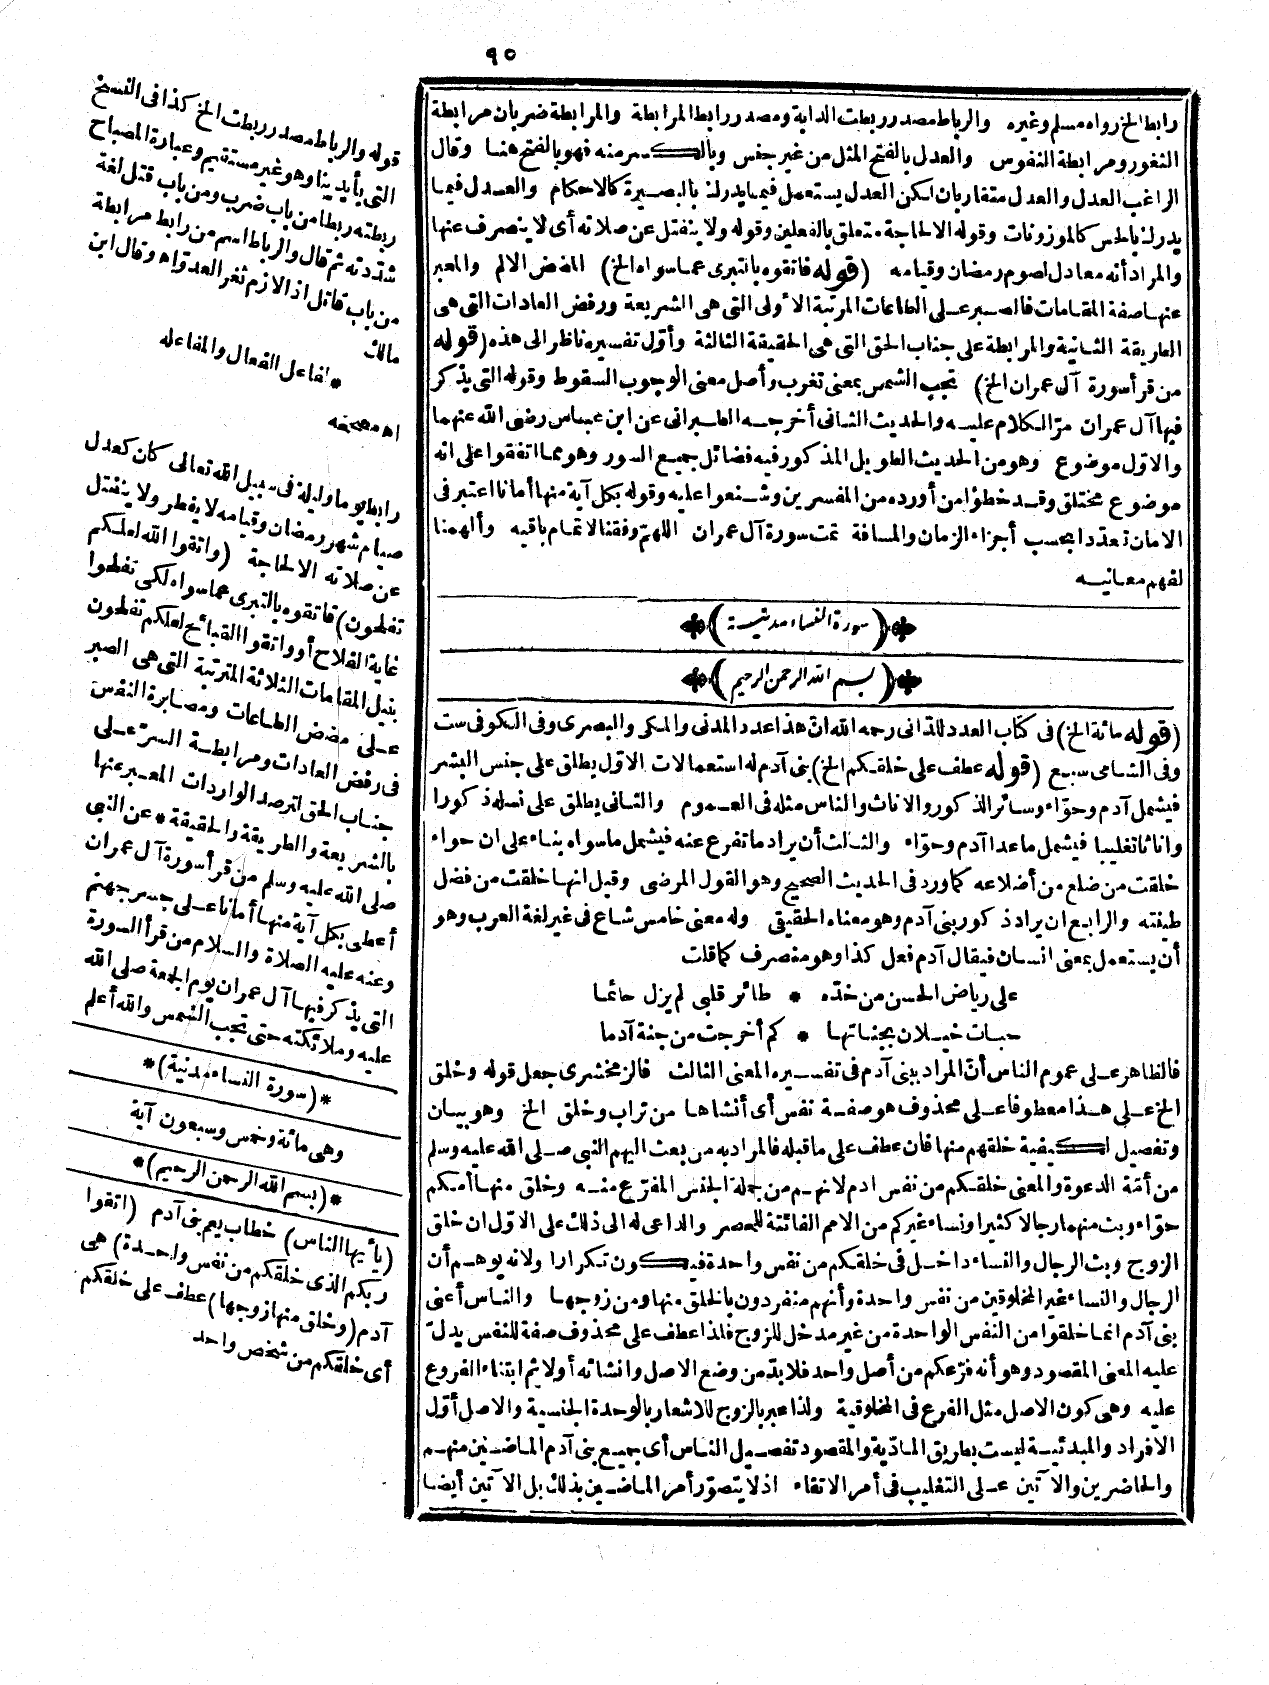 ٩٥
رابط الخ رواه مسلم وغيره والرباط مصدر ربطت الدابة ومصدر رابط المرابطة والمرابطة ضربان مرابطة
الثغور ومرابطة النفوس والعدل بالفتح المثل من غير جنس وبالكسر منه فهو بالفتح هنا وقال
الراغب العدل والعدل متقاربان لكن العدل يستعمل فيما يدرك بالبصيرة كالاحكام والعدل فيما
يدرك بالحس كالموزونات وقوله الالحاجة متعلق بالفعلين وقوله ولا ينفتل عن صلاته أى لا ينصرف عنها
والمراد أنه معادل لصوم رمضان وقيامه (قوله فاتقوه بالتبرى عما سواه الخ) المضض الالم والمعبر
عنها صفة المقامات فالصبر على الطاعات المرتبة الاولى التى هى الشريعة ورفض العادات التى هى
الطريقة الثانية والمرابطة على جناب الحق التى هى الحقيقة الثالثة وأول تفسيره ناظر الى هذه (قوله
من قرأ سورة آل عمران الخ) تجب الشمس بمعنى تغرب وأصل معنى الوجوب السقوط وقوله التى يذكر
فيها آل عمران مر الكلام عليه والحديث الثانى أخرجه الطبرانى عن ابن عباس رضى الله عنهما
والاول موضوع وهو من الحديث الطويل المذكور فيه فضائل جميع السور وهو مما اتفقوا على انه
موضوع مختلق وقد خطؤا من أورده من المفسرين وشنعوا عليه وقوله بكل آية منها أمانا اعتبر فى
الامان تعددا بحسب أجزاء الزمان والمسافة تمت سورة آل عمران اللهم وفقنا لاتمام باقيه وألهمنا
لفهم معانيه
(سورة النساء مدنية)
(بسم الله الرحمن الرحيم)
(قوله مائة الخ) فى كتاب العدد للدانى رحمه الله ان هذا عدد المدنى والمكى والبصرى وفى الكوفى ست
وفى الشامى سبع (قوله عطف على خلقكم الخ) بنى آدم له استعمالات الاول يطلق على جنس البشر
فيشمل آدم وحوّاء وسائر الذكور والاناث والناس مثله فى العموم والثانى يطلق على نسله ذكورا
واناثا تغليبا فيشمل ماعدا آدم وحوّاء والثالث أن يراد ما تفرع عنه فيشمل ماسواه بناء على ان حواء
خلقت من ضلع من أضلاعه كما ورد فى الحديث الصحيح وهو القول المرضى وقيل انها خلقت من فضل
طينته والرابع ان يراد ذكور بنى آدم وهو معناه الحقيقى وله معنى خامس شاع فى غير لغة العرب وهو
أن يستعمل بمعنى انسان فيقال آدم فعل كذا وهو منصرف كما قلت
على رياض الحسن من خدّه * طائر قلبى لم يزل حائما
حبات خيلان بجناتها * كم أخرجت من جنة آدما
فالظاهر على عموم الناس أنّ المراد ببنى آدم فى تفسيره المعنى الثالث فالزمخشرى جعل قوله وخلق
الخ على هذا معطوفا على محذوف هو صفة نفس أى أنشاها من تراب وخلق الخ وهو بيان
وتفصيل لكيفية خلقهم منها فان عطف على ما قبله فالمراد به من بعث اليهم النبى صلى الله عليه وسلم
من أمّة الدعوة والمعنى خلقكم من نفس ادم لانهم من جملة الجنس المفرّع منه وخلق منها أمكم
حوّاء وبث منهما رجالا كثيرا ونساء غيركم من الامم الفائتة للحصر والداعى له الى ذلك على الاول ان خلق
الزوج وبث الرجال والنساء داخل فى خلقكم من نفس واحدة فيكون تكرارا ولانه يوهم أن
الرجال والنساء غير المخلوقين من نفس واحدة وأنهم منفردون بالخلق منها ومن زوجها والناس أعنى
بنى آدم انما خلقوا من النفس الواحدة من غير مدخل للزوج فلذا عطف على محذوف صفة للنفس يدلّ
عليه المعنى المقصود وهو أنه فرّعكم من أصل واحد فلا بدّ من وضع الاصل وانشائه أولا ثم ابتناء الفروع
عليه وهى كون الاصل مثل الفرع فى المخلوقية ولذا عبر بالزوج للاشعار بالوحدة الجنسية والاصل أوّل
الافراد والمبدئية ليست بطريق المادّية والمقصود تفصيل الناس أى جميع بنى آدم الماضين منهم
والحاضرين والآتين على التغليب فى أمر الاتقاء اذ لا يتصوّر أمر الماضين بذلك بل الآتين أيضا
قوله والرباط مصدر ربطت الخ كذا فى النسخ
التى بأيدينا وهو غير مستقيم وعبارة المصباح
ربطته ربطا من باب ضرب ومن باب قتل لغة
شددته ثم قال والرباط اسم من رابط مرابطة
من باب قاتل اذا لازم ثغر العدو اه وقال ابن
مالك
* لفاعل الفعال والمفاعله
اه مصححه
رابط يوما وليلة فى سبيل الله تعالى كان كعدل
صيام شهر رمضان وقيامه لا يفطر ولا ينفتل
عن صلاته الالحاجة (واتقوا الله لعلكم
تفلحون) فاتقوه بالتبرى عما سواه لكى تفلحوا
غاية الفلاح أو واتقوا القبائح لعلكم تفلحون
بنيل المقامات الثلاثة المترتبة التى هى الصبر
على مضض الطاعات ومصابرة النفس
فى رفض العادات ومرابطة السرّ على
جناب الحق لترصد الواردات المعبر عنها
بالشريعة والطريقة والحقيقة * عن النبى
صلى الله عليه وسلم من قرأ سورة آل عمران
أعطى بكل آية منها أمانا على جسر جهنم
وعنه عليه الصلاة والسلام من قرأ السورة
التى يذكر فيها آل عمران يوم الجمعة صلى الله
عليه وملائكته حتى تجب الشمس والله أعلم
*(سورة النساء مدنية)*
وهى مائة وخمس وسبعون آية
*(بسم الله الرحمن الرحيم)*
(يأيها الناس) خطاب يعم بنى آدم (اتقوا
ربكم الذى خلقكم من نفس واحدة) هى
آدم (وخلق منها زوجها) عطف على خلقكم
أى خلقكم من شخص واحد